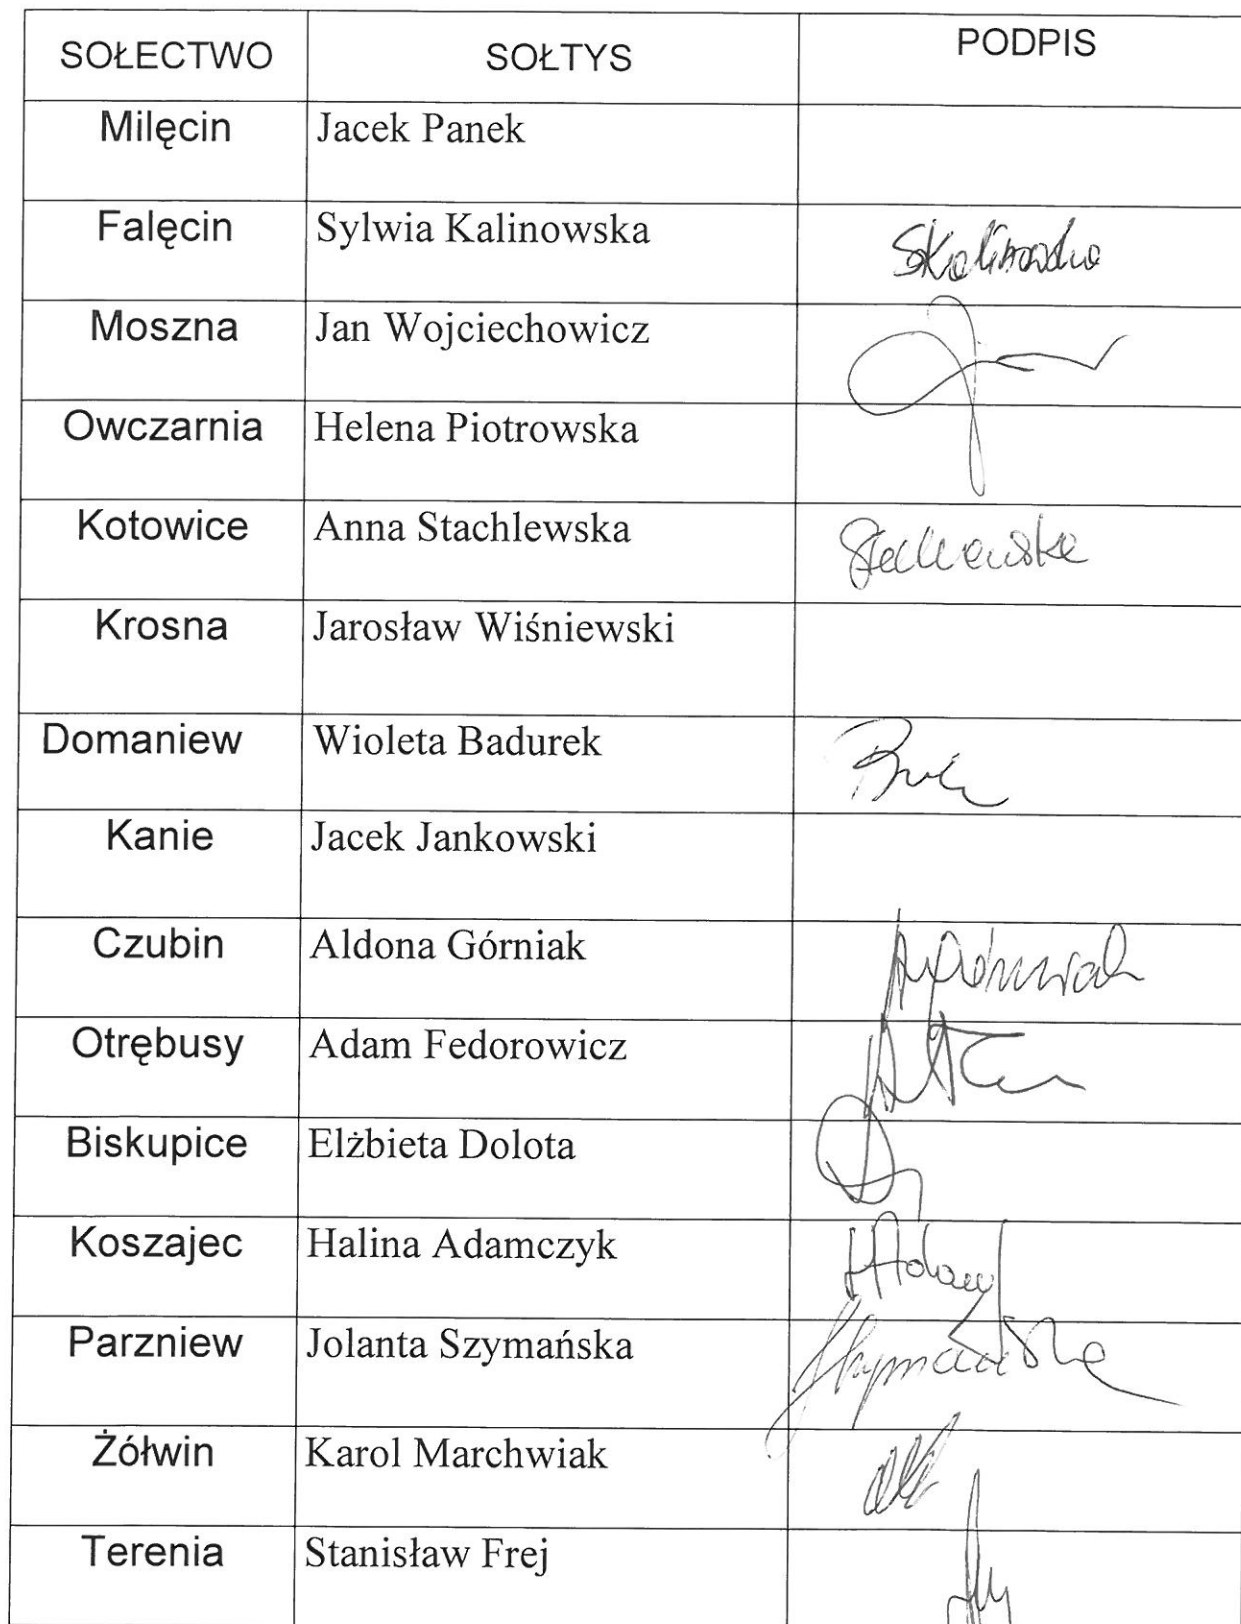 SOŁECTWO SOŁTYS PODPIS
Milęcin Jacek Panek
Falęcin Sylwia Kalinowska SKalinowska
Moszna Jan Wojciechowicz
Owczarnia Helena Piotrowska
Kotowice Anna Stachlewska
Krosna Jarosław Wiśniewski
Domaniew Wioleta Badurek
Kanie Jacek Jankowski
Czubin Aldona Górniak AGórniak
Otrębusy Adam Fedorowicz
Biskupice Elżbieta Dolota
Koszajec Halina Adamczyk HAdamczyk
Parzniew Jolanta Szymańska Szymańska
Żółwin Karol Marchwiak
Terenia Stanisław Frej